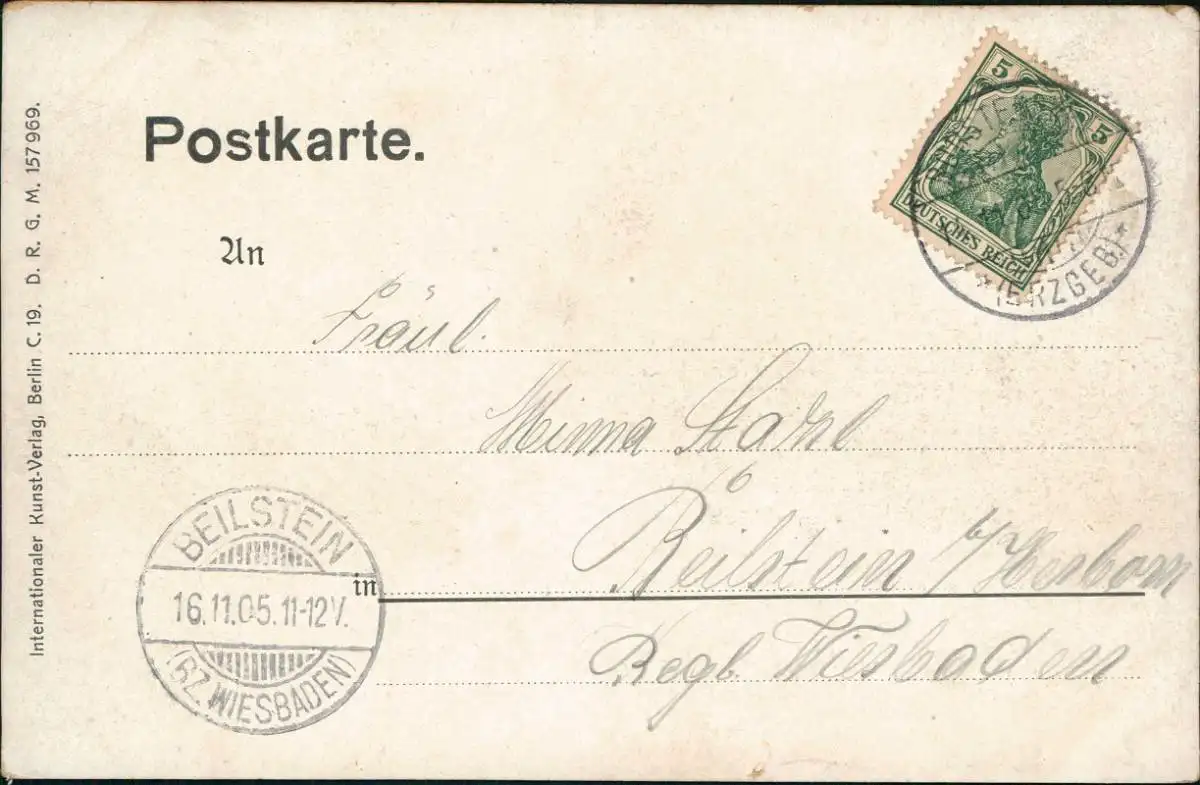 Postkarte.
An
Fräul.
Minna
Beilstein b/
Regb. Wiesbaden
in
Internationaler Kunst-Verlag, Berlin C. 19. D. R. G. M. 157969.
5 5
DEUTSCHES REICH
*(ERZGEB)*
BEILSTEIN
16.11.05.11-12V.
(BZ. WIESBADEN)